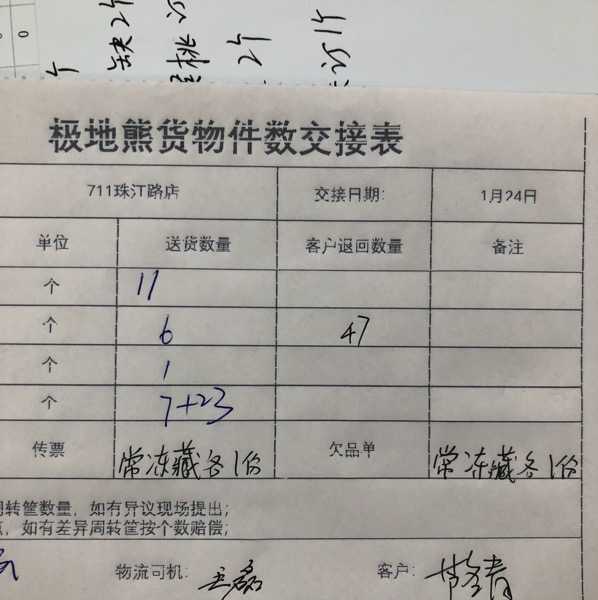 缺2个
2个
极地熊货物件数交接表
711珠江路店 交接日期: 1月24日
单位 送货数量 客户退回数量 备注
个 11
个 6 47
个 1
个 7+23
传票 常冻藏各1份 欠品单 常冻藏各1份
周转筐数量，如有异议现场提出;
，如有差异周转筐按个数赔偿;
物流司机: 王磊 客户: